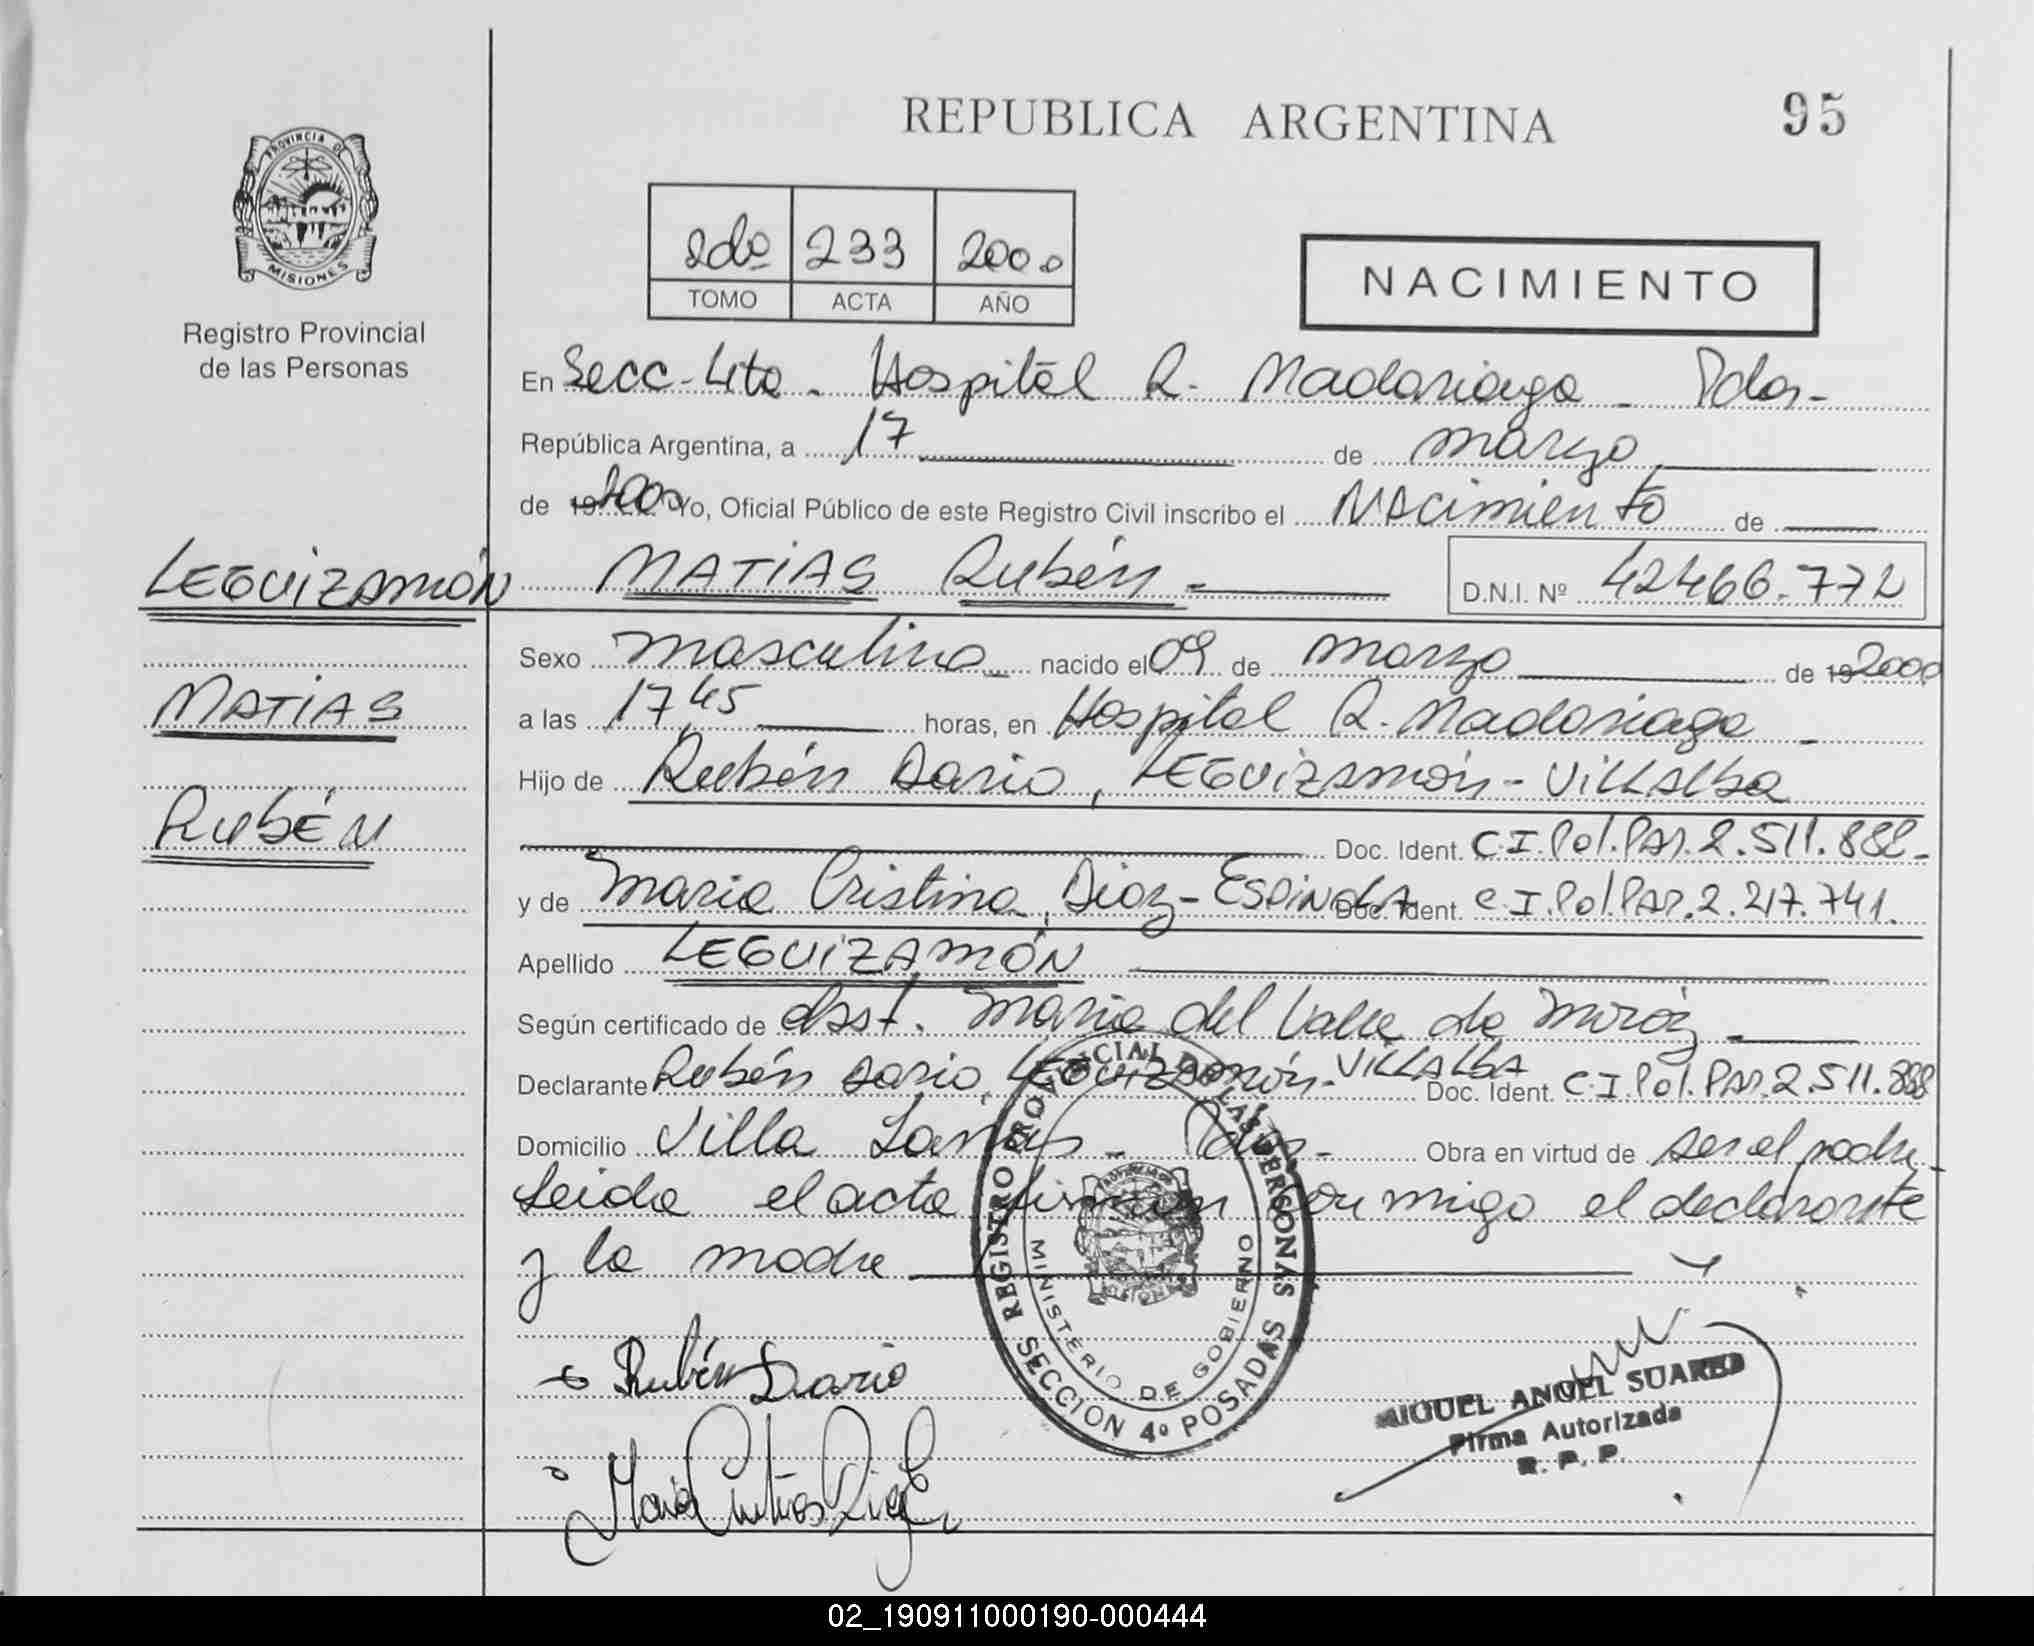 REPUBLICA ARGENTINA
95
PROVINCIA DE
MISIONES
Registro Provincial
de las Personas
2do 233 2000
TOMO ACTA AÑO
NACIMIENTO
En Secc-4ta - Hospital R. Madariaga - Pdas-
República Argentina, a 17 de marzo
de 19 2000 Yo, Oficial Público de este Registro Civil inscribo el Nacimiento de
LEGUIZAMÓN MATIAS Rubén -
D.N.I. Nº 42466.772
Sexo masculino nacido el 09 de marzo de 19 2000
MATIAS
a las 17,45 horas, en Hospital R. Madariaga -
Hijo de Rubén Dario, LEGUIZAMÓN - VILLALBA
RUBÉN
Doc. Ident. C.I.Pol.PAR.2.511.888-
y de Maria Cristina, Diaz - ESPINOLA Doc. Ident. C.I.Pol.PAR.2.217.741.
Apellido LEGUIZAMÓN
Según certificado de Obst. Maria del Valle de
Declarante Rubén Dario, LEGUIZAMÓN - VILLALBA Doc. Ident. C.I.Pol.PAR.2.511.888
Domicilio Villa Lanús - Pdas - Obra en virtud de ser el padre -
Leida el acta firman conmigo el declarante
y la madre
REGISTRO PROVINCIAL DE LAS PERSONAS
SECCION 4º POSADAS
MINISTERIO DE GOBIERNO
Rubén Dario
Maria Cristina Diaz
MIGUEL ANGEL SUAREZ
Firma Autorizada
R. P. P.
02_190911000190-000444